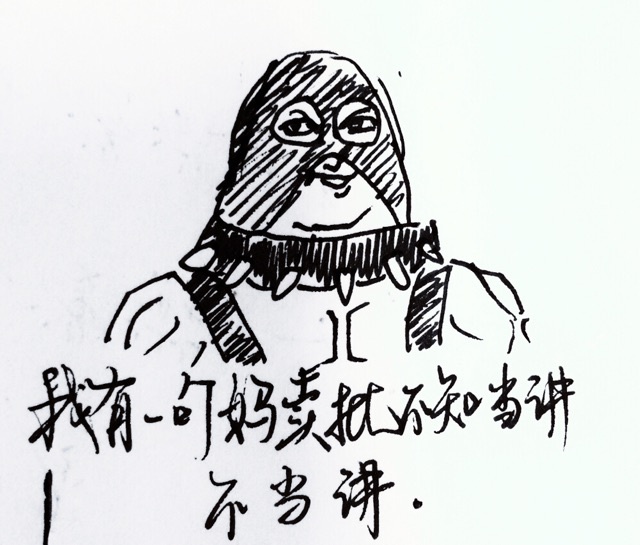 我有一句妈卖批不知当讲
不当讲.